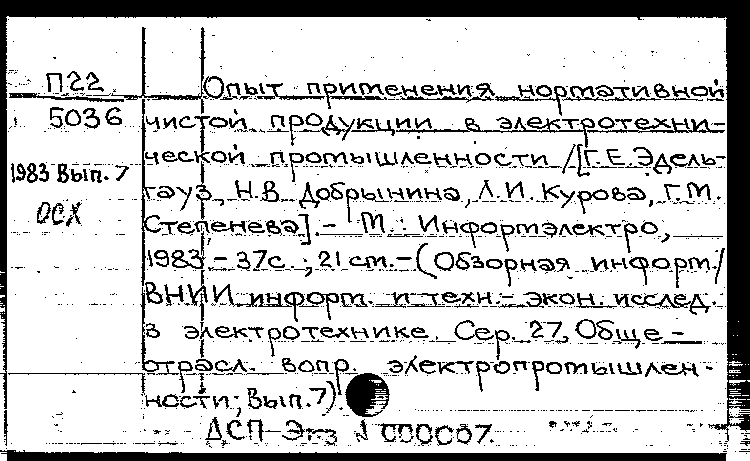 П22
5036
1983 Вып. 7
ОСХ
Опыт применения нормативной
чистой продукции в электротехни-
ческой промышленности /[Г.Е. Эдель-
гауз, Н.В. Добрынина, Л.И. Курова, Г.М.
Степенева]. – М.: Информэлектро,
1983 – 37с. ; 21 см. – (Обзорная информ./
ВНИИ информ. и техн.- экон. исслед.
в электротехнике. Сер. 27, Обще-
отрасл. вопр. электропромышлен-
ности; Вып. 7).
ДСП Экз № 000007.